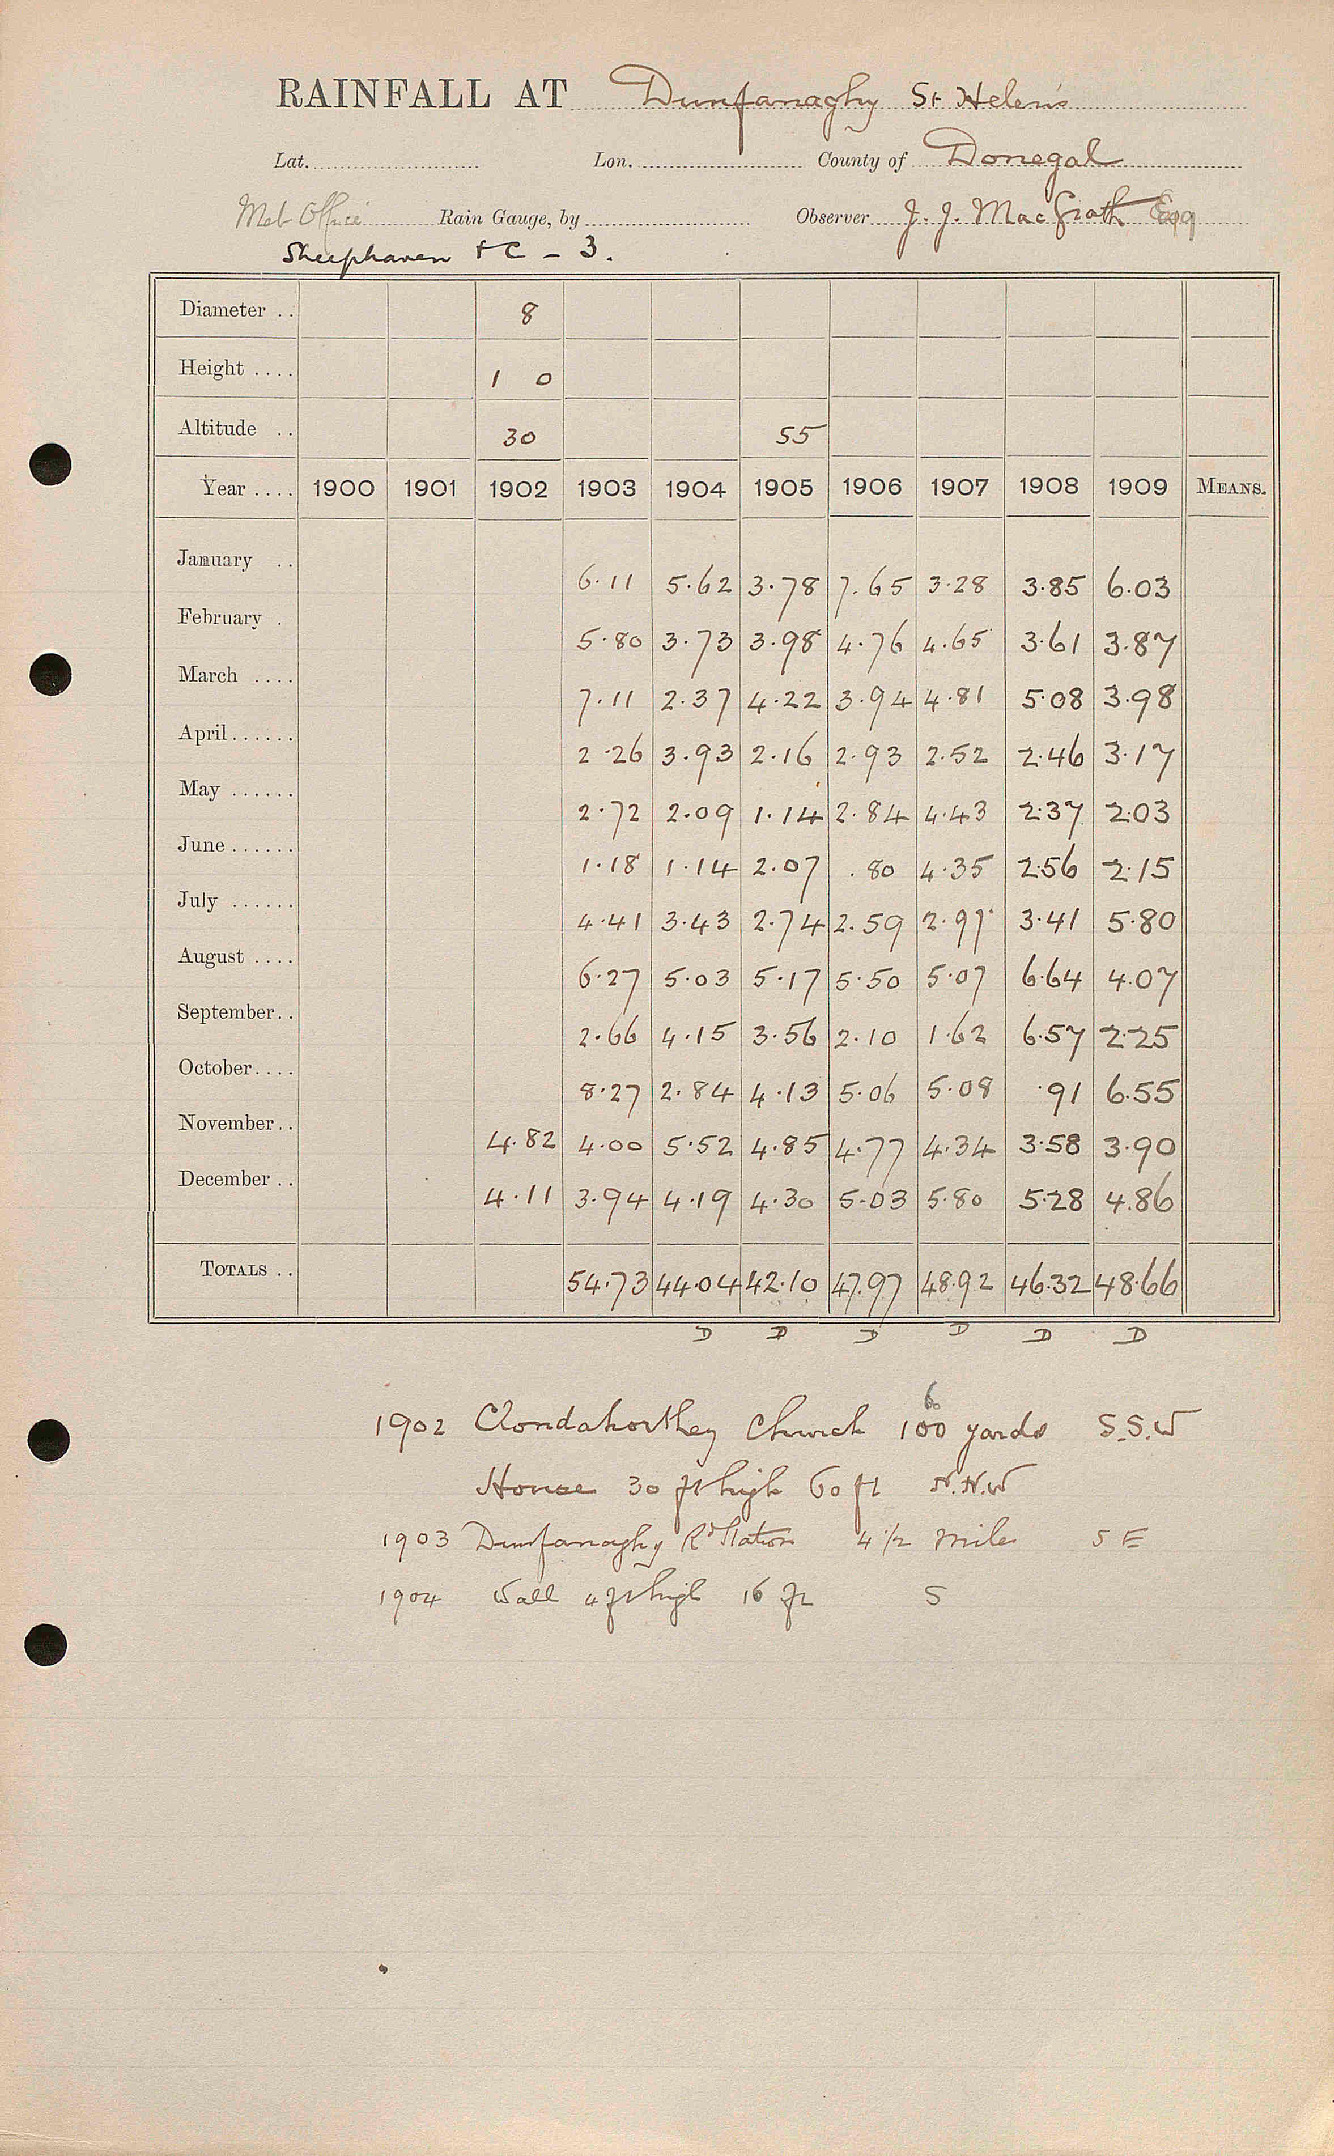 RAINFALL AT Dunfanaghy St Helens
Lat. Lon. County of Donegal
Met Office Rain Gauge, by Observer J. J. MacGrath Esq
Sheephaven + C - 3.
Diameter .. 8
Height .... 1 0
Altitude .. 30 55
Year .... 1900 1901 1902 1903 1904 1905 1906 1907 1908 1909 MEANS.
January .. 6.11 5.62 3.78 7.65 3.28 3.85 6.03
February . 5.80 3.73 3.98 4.76 4.65 3.61 3.87
March .... 7.11 2.37 4.22 3.94 4.81 5.08 3.98
April...... 2.26 3.93 2.16 2.93 2.52 2.46 3.17
May ...... 2.72 2.09 1.14 2.84 4.43 2.37 2.03
June...... 1.18 1.14 2.07 .80 4.35 2.56 2.15
July ...... 4.41 3.43 2.74 2.59 2.97 3.41 5.80
August .... 6.27 5.03 5.17 5.50 5.07 6.64 4.07
September.. 2.66 4.15 3.56 2.10 1.62 6.57 2.25
October.... 8.27 2.84 4.13 5.06 5.08 .91 6.55
November.. 4.82 4.00 5.52 4.85 4.77 4.34 3.58 3.90
December .. 4.11 3.94 4.19 4.30 5.03 5.80 5.28 4.86
TOTALS .. 54.73 44.04 42.10 47.97 48.92 46.32 48.66
D D D D D D
6
1902 Clondahorkey Church 100 yards S.S.W
House 30 ft high 60 ft N.N.W
1903 Dunfanaghy Rd Station 4 1/2 miles S E
1904 Wall 4 ft high 16 ft S